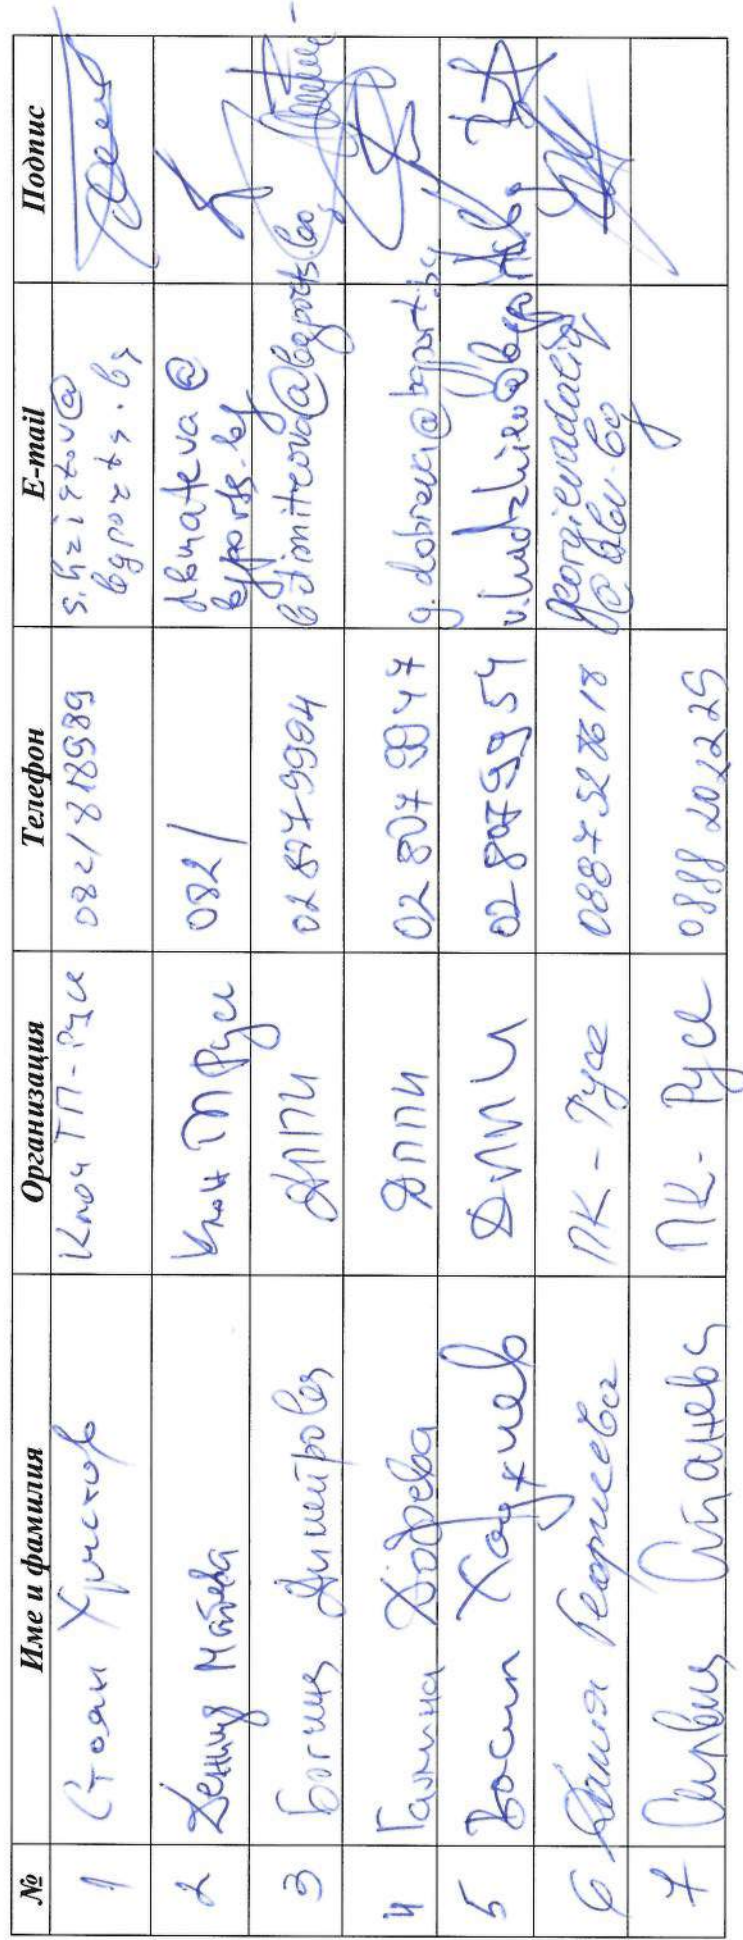 № Име и фамилия Организация Телефон E-mail Подпис
1 Стоян Христов Клон ТП-Русе 082/818989 s.hristov@
bgports.bg
2 Матева Клон ТП Русе 082/
bgports.bg
3 Димитрова ДППИ 028079994 bdimitrova@bgports.bg
4 Галина Добрева ДППИ 02 807 9947 g.dobreva@bgports.bg
5 Васил Хаджиев ДППИ 02 8079954
6 Далия Георгиева ПК - Русе georgievadalia
@abv.bg
7 Силвия ПК - Русе 0888 202229